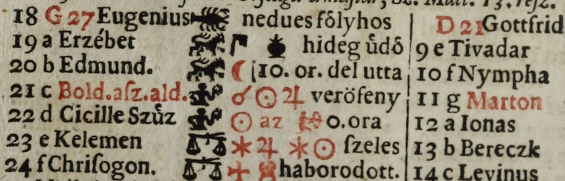 18 G 27 Eugenius nedues fôlyhos D 21 Gottfrid
19 a Erzébet hideg üdô 9 e Tivadar
20 b Edmund. ☾ 10. or. del utta 10 f Nympha
21 c Bold.aſz.ald. ☌ ☉ ♃ veröfeny 11 g Marton
22 d Cicille Szűz ☉ az 0.ora 12 a Ionas
23 e Kelemen ✶ ♃ ✶ ☉ ſzeles 13 b Bereczk
24 f Chriſogon. haborodott. 14 c Levinus